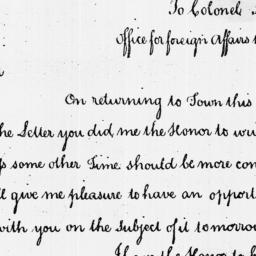 To Colonel
Office for foreign Affairs
On returning to Town this
the Letter you did me the Honor to
some other Time should be more
give me pleasure to have an
with you on the Subject of it